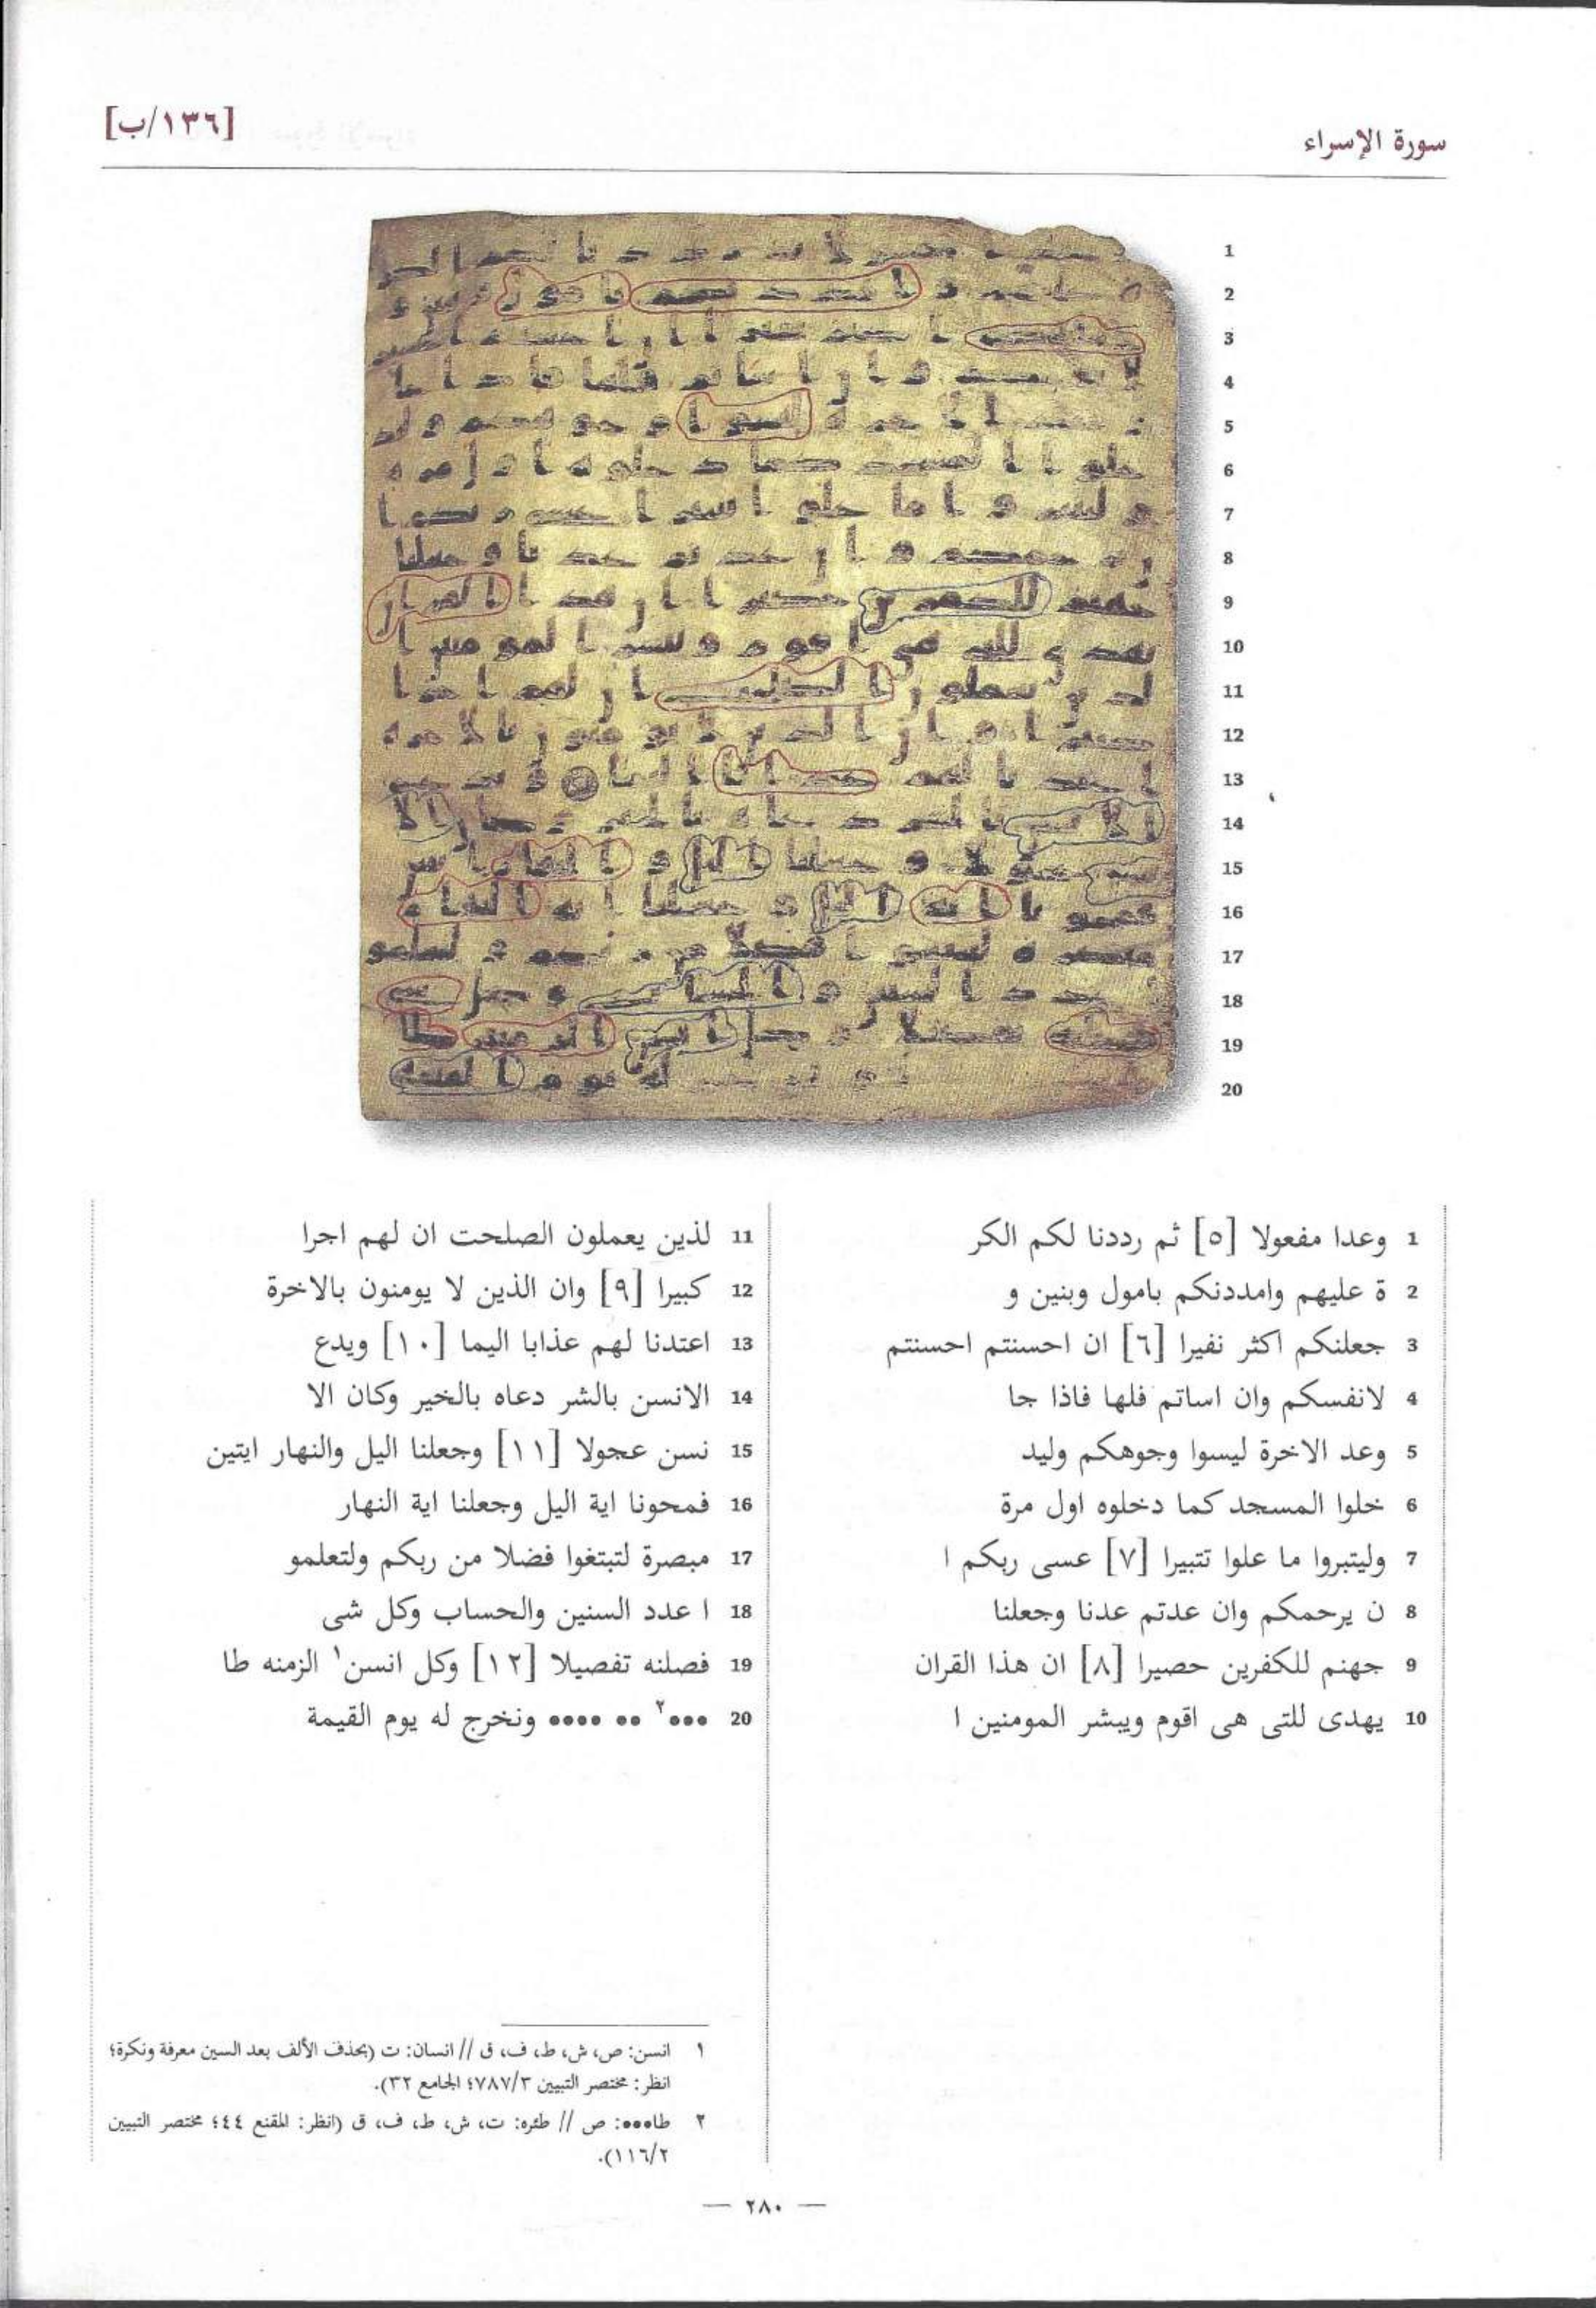 [١٣٦/ب]
سورة الإسراء
1 وعدا مفعولا [٥] ثم رددنا لكم الكر
2 ة عليهم وامددنكم بامول وبنين و
3 جعلنكم اكثر نفيرا [٦] ان احسنتم احسنتم
4 لانفسكم وان اساتم فلها فاذا جا
5 وعد الاخرة ليسوا وجوهكم وليد
6 خلوا المسجد كما دخلوه اول مرة
7 وليتبروا ما علوا تتبيرا [٧] عسى ربكم ا
8 ن يرحمكم وان عدتم عدنا وجعلنا
9 جهنم للكفرين حصيرا [٨] ان هذا القران
10 يهدى للتى هى اقوم ويبشر المومنين ا
11 لذين يعملون الصلحت ان لهم اجرا
12 كبيرا [٩] وان الذين لا يومنون بالاخرة
13 اعتدنا لهم عذابا اليما [١٠] ويدع
14 الانسن بالشر دعاه بالخير وكان الا
15 نسن عجولا [١١] وجعلنا اليل والنهار ايتين
16 فمحونا اية اليل وجعلنا اية النهار
17 مبصرة لتبتغوا فضلا من ربكم ولتعلمو
18 ا عدد السنين والحساب وكل شى
19 فصلنه تفصيلا [١٢] وكل انسن١ الزمنه طا
20 •••٢ •• •••• ونخرج له يوم القيمة
١ انسن: ص، ش، ط، ف، ق // انسان: ت (بحذف الألف بعد السين معرفة ونكرة؛
انظر: مختصر التبيين ٧٨٧/٣؛ الجامع ٣٢).
٢ طا•••: ص // طئره: ت، ش، ط، ف، ق (انظر: المقنع ٤٤؛ مختصر التبيين
١١٦/٢).
— ٢٨٠ —